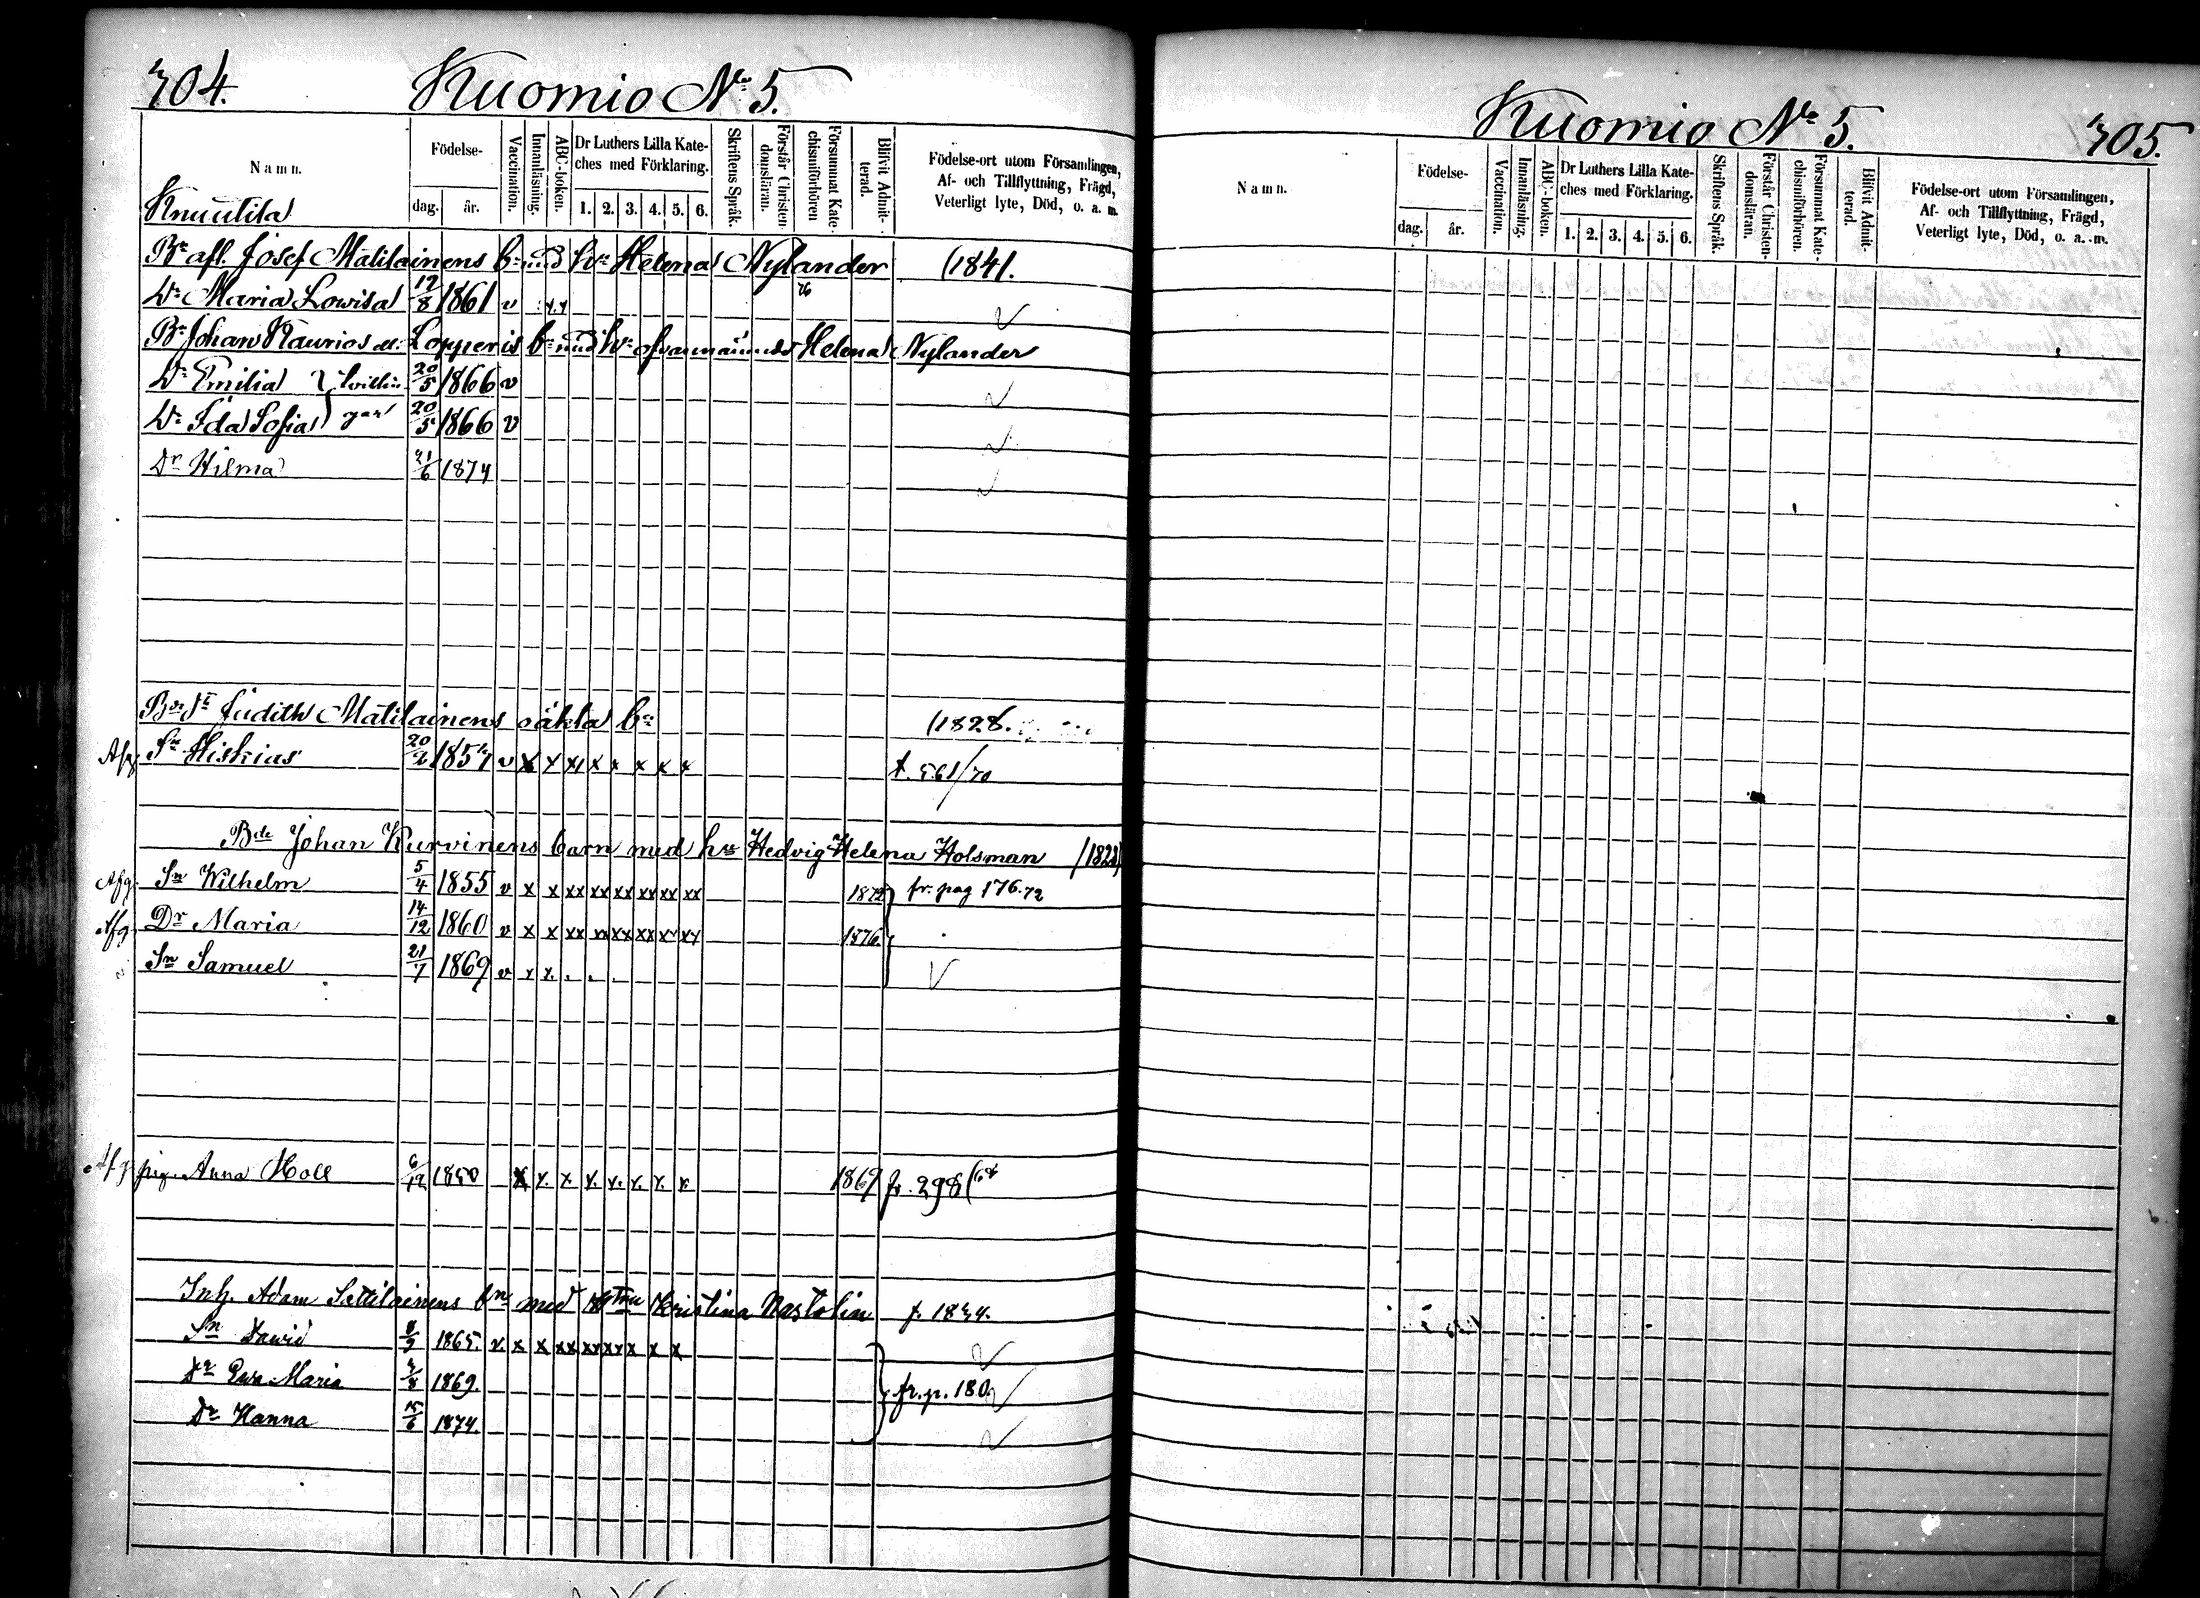 704.
Kuomio No 5.
Namn.
Födelse-
dag. år.
Vaccination.
Innanläsning.
ABC-boken.
Dr Luthers Lilla Kate-
ches med Förklaring.
1. 2. 3. 4. 5. 6.
Skriftens Språk.
Förstår Christen-
domsläran.
Försummat Kate-
chismiförhören
Blifvit Admit-
terad.
Födelse-ort utom Församlingen,
Af- och Tillflyttning, Frägd,
Veterligt lyte, Död, o. a. m.
Knuutila
Bn afl. Josef Matilainens bn med hu Helena Nylander (1841.
Dr Maria Lowisa 12/8 1861 v x x
Johan Kaurios Lopperis bn med hu Helena Nylander
Dr Emilia 20/5 1866 v
Dr Ida Sofia 20/5 1866 v
Dr Hilma 21/6 1874
Judith Matilainens oäkta bn (1828.
Afg Sn Hiskias 20/2 1857 v x x x x x x x x f. 561/70
Bde Johan Kurvinens barn med hu Hedvig Helena Holsman (1828)
Afg. Sn Wilhelm 5/4 1855 v x x xx xx xx xx xx xx 1872 fr. pag 176.72
Afg Dr Maria 14/12 1860 v x x xx xx xx xx xx xx 1876
Sn Samuel 21/7 1869 v x x.
Afg pig. Anna Holl 6/12 1850 x x. x x. x. x. x. x. 1867 fr. 298
Inh. Adam Sattilainens bn med Hstru Kristina Nastolin f. 1834.
Sn David 8/9 1865. v. x x xx xx xx x x x
Dr Eva Maria 1869. fr. p. 180.
Dr Hanna 15/6 1874.
Kuomio No 5.
705.
Namn.
Födelse-
dag. år.
Vaccination.
Innanläsning.
ABC-boken.
Dr Luthers Lilla Kate-
ches med Förklaring.
1. 2. 3. 4. 5. 6.
Skriftens Språk.
Förstår Christen-
domsläran.
Försummat Kate-
chismiförhören.
Blifvit Admit-
terad.
Födelse-ort utom Församlingen,
Af- och Tillflyttning, Frägd,
Veterligt lyte, Död, o. a. m.